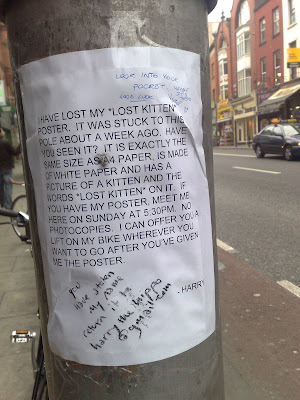 LOOK INTO YOUR
POCKET
I HAVE LOST MY *LOST KITTEN*
POSTER. IT WAS STUCK TO THIS
POLE ABOUT A WEEK AGO. HAVE
YOU SEEN IT? IT IS EXACTLY THE
SAME SIZE AS A4 PAPER, IS MADE
OF WHITE PAPER AND HAS A
PICTURE OF A KITTEN AND THE
WORDS *LOST KITTEN* ON IT. IF
YOU HAVE MY POSTER, MEET ME
HERE ON SUNDAY AT 5:30PM. NO
PHOTOCOPIES. I CAN OFFER YOU A
LIFT ON MY BIKE WHEREVER YOU
WANT TO GO AFTER YOU'VE GIVEN
ME THE POSTER.
- HARRY
you
have stolen
my name
return it to
harry the hippo
@gmail.com